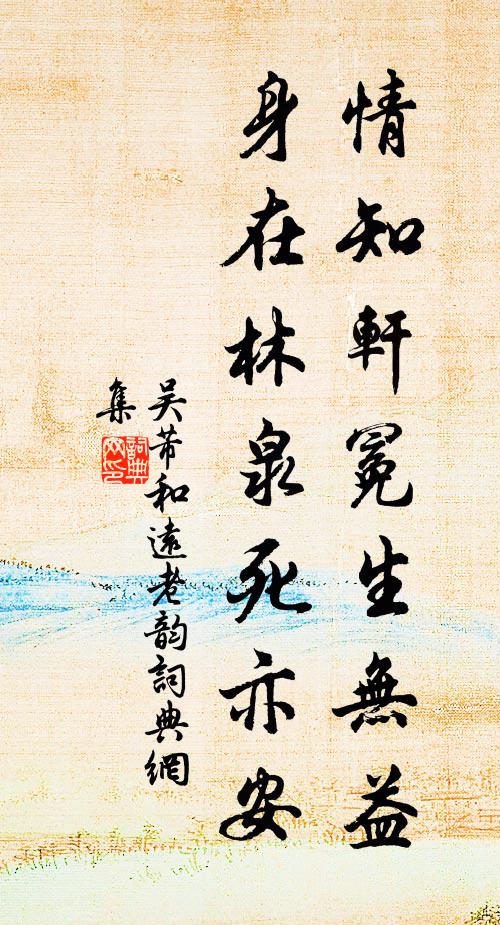 情知軒冕生無益
身在林泉死亦安
吴芾和遠老韵詞典網
集
詞典網印